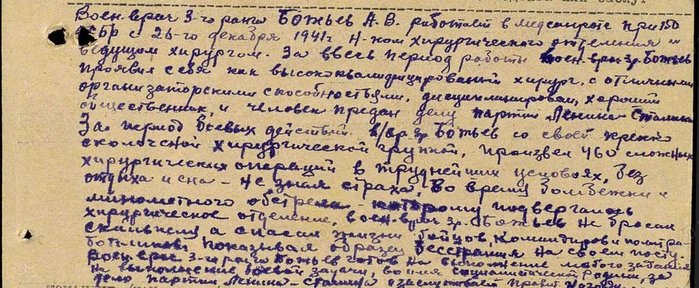 Воен. врач 3-го ранга Божьев А.В. работает в медсанроте при 150
СБР с 26-го декабря 1941г. Н-ком хирургического отделения и
ведущим хирургом. За ввесь период работы воен-врач 3р. Божьев
проявил себя как высококвалифицированный хирург, с отличными
организаторскими способностями, дисциплинирован, хороший
общественник, и человек предан делу партии Ленина Сталина
За период боевых действий в/вр 3р Божьев со своей крепко
сколоченной хирургической группой, произвел 460 сложных
хирургических операций в труднейших условиях, без
отдыха и сна - не зная страха. Во время бомбежки и
минометного обстрела - которому подвергалось
хирургическое отделение, воен-врач 3р. Божьев не бросал
скальпеля а спасал жизни бойцов, командиров и политра-
ботников, показывая образец бесстрашия на своем посту.
Воен врач 3-го ранга Божьев готов на выполнение любого задания
на выполнение боевой задачи, во имя социалистической родины, за
дело партии Ленина - Сталина